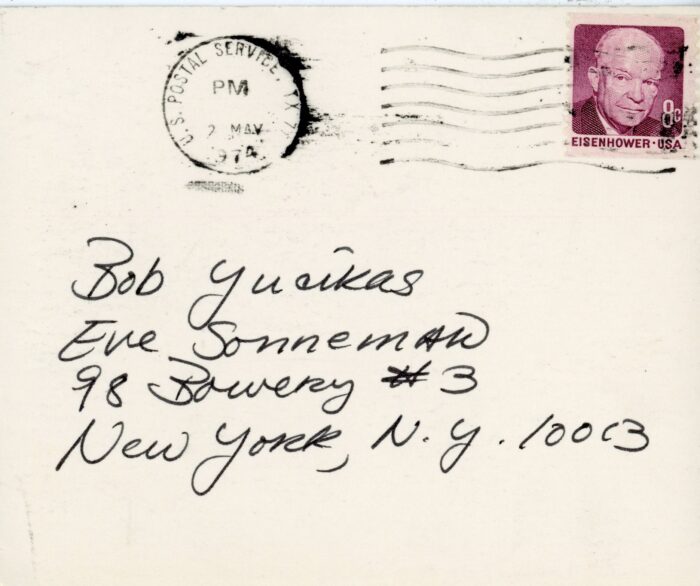 U.S. POSTAL SERVICE TX
PM
2 MAY
1974
8c
EISENHOWER·USA
Bob Yucikas
Eve Sonneman
98 Bowery #3
New York, N.Y. 10013